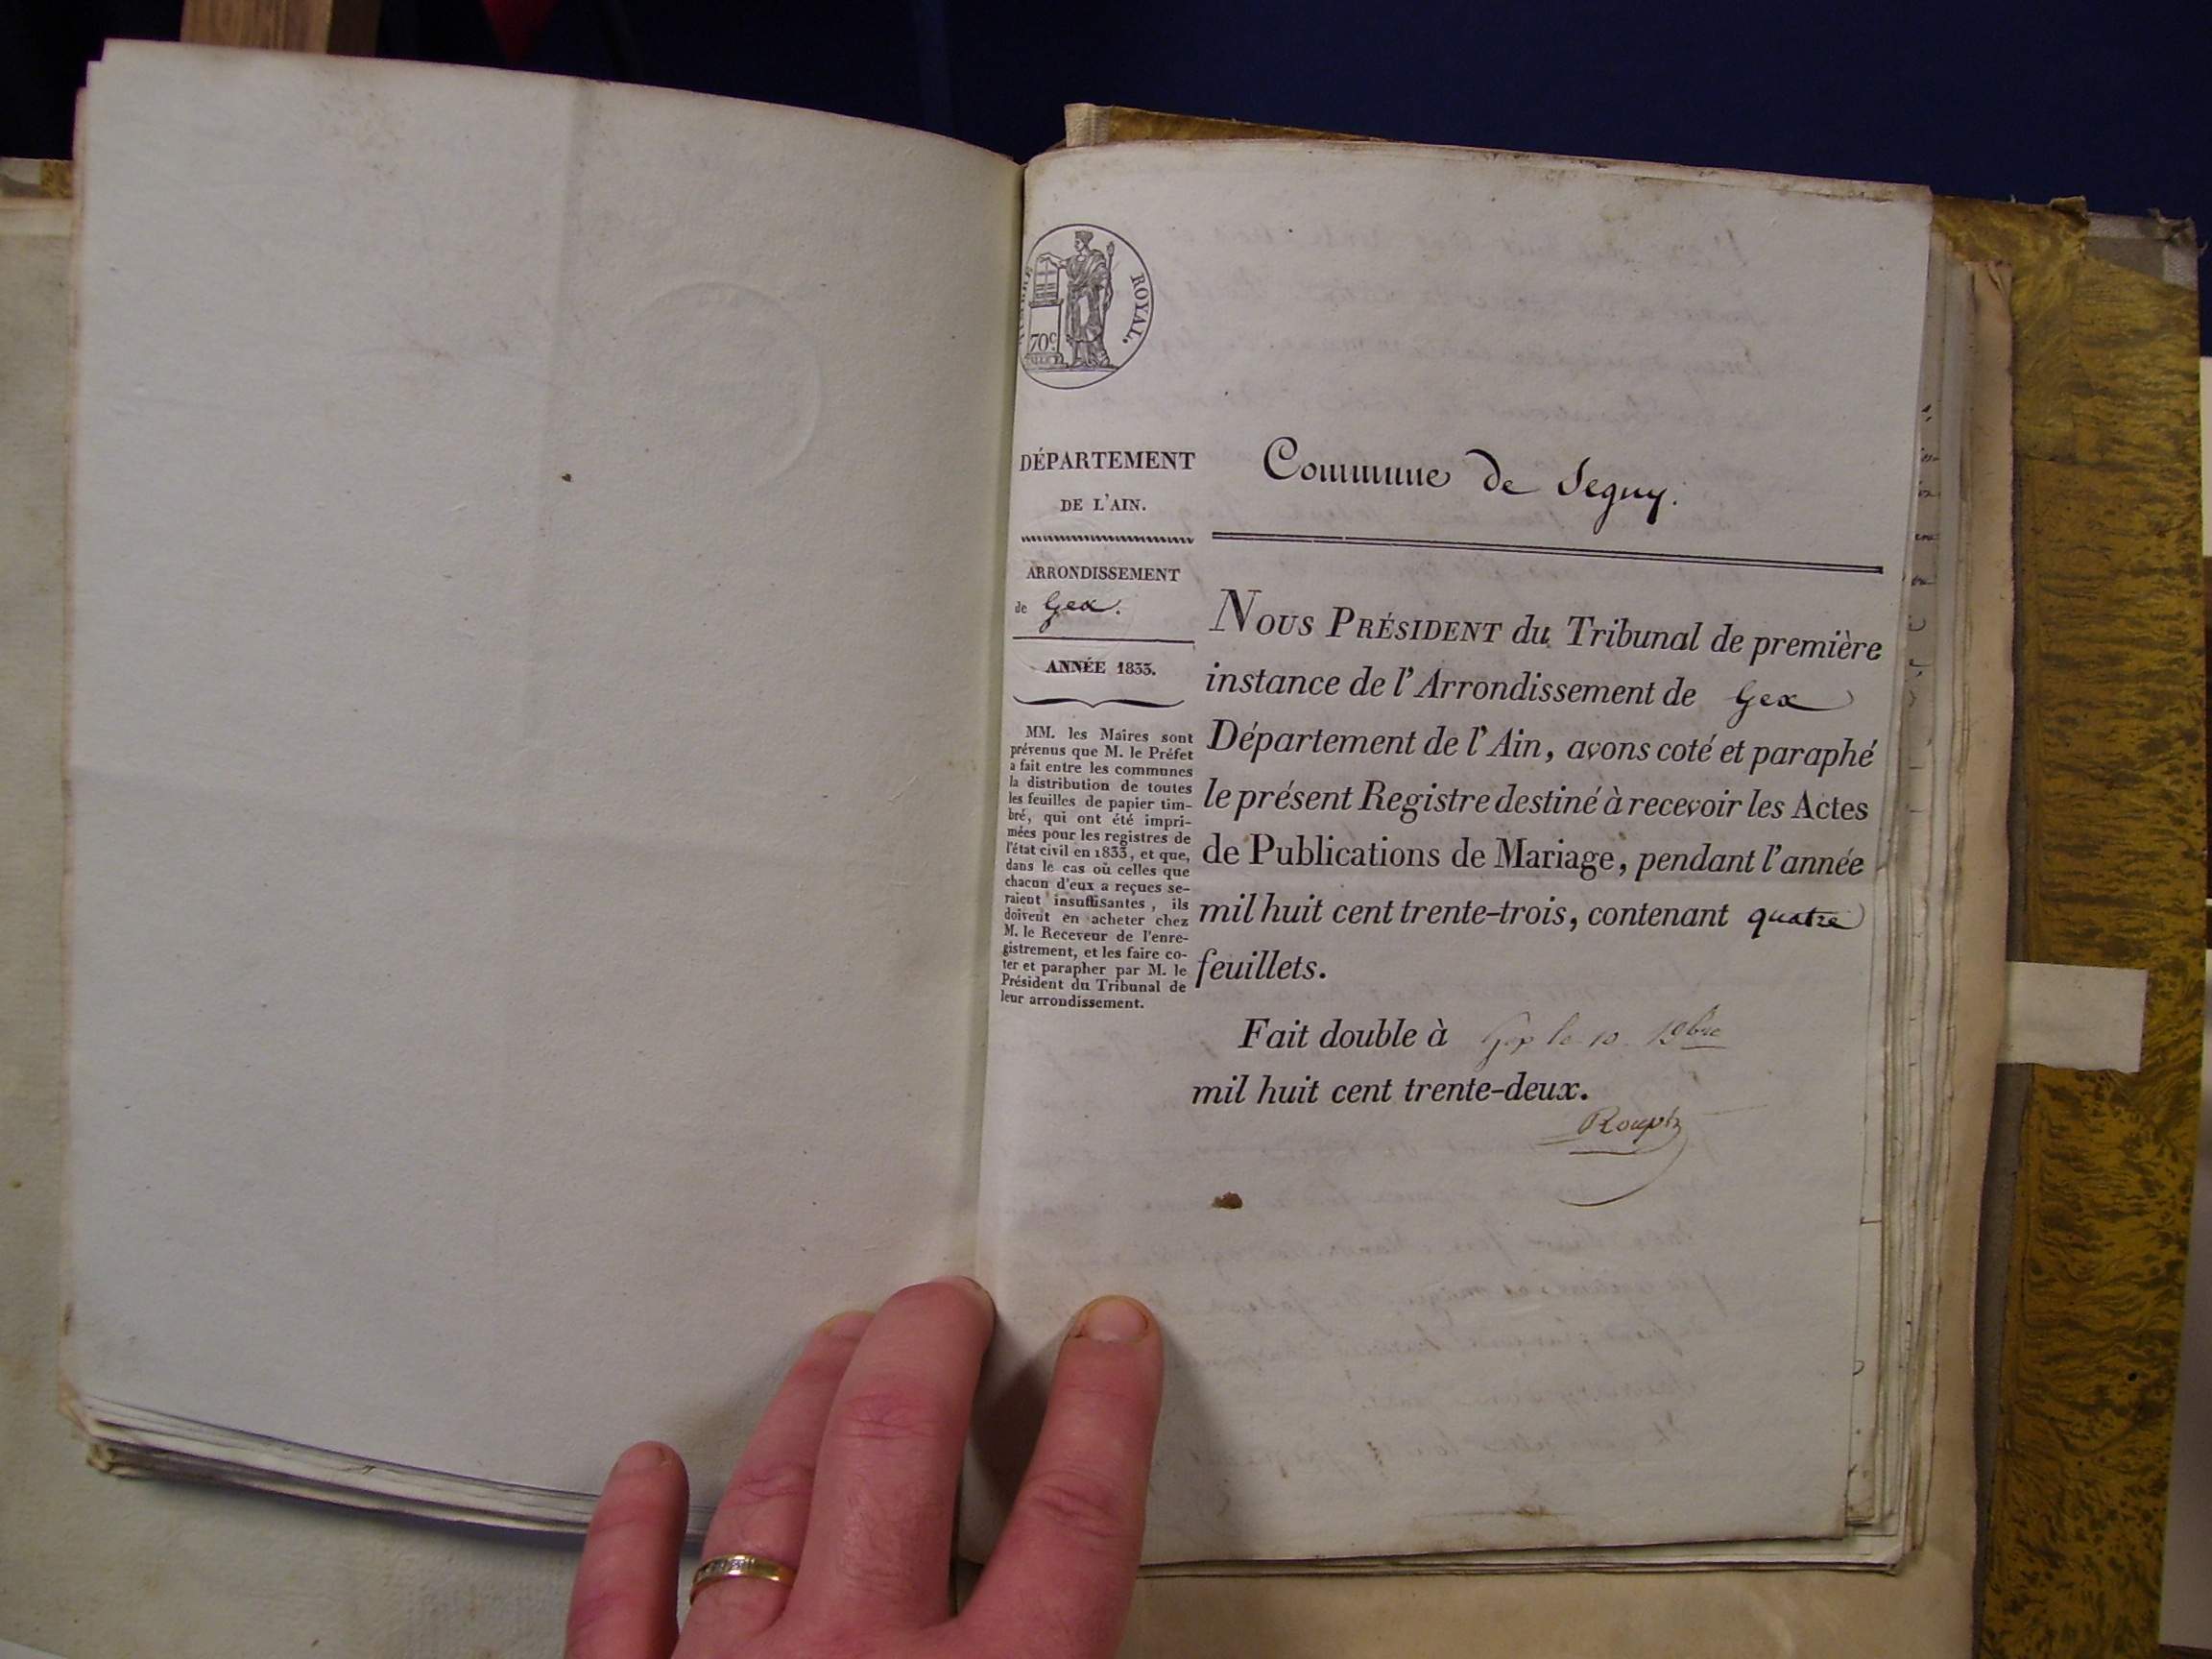 ROYAL.
70c
DÉPARTEMENT
DE L'AIN.
ARRONDISSEMENT
de Gex.
ANNÉE 1833.
MM. les Maires sont
prévenus que M. le Préfet
a fait entre les communes
la distribution de toutes
les feuilles de papier tim-
bré, qui ont été impri-
mées pour les registres de
l'état civil en 1833, et que,
dans le cas où celles que
chacun d'eux a reçues se-
raient insuffisantes, ils
doivent en acheter chez
M. le Receveur de l'enre-
gistrement, et les faire co-
ter et parapher par M. le
Président du Tribunal de
leur arrondissement.
Commune de Segny.
NOUS PRÉSIDENT du Tribunal de première
instance de l'Arrondissement de Gex
Département de l'Ain, avons coté et paraphé
le présent Registre destiné à recevoir les Actes
de Publications de Mariage, pendant l'année
mil huit cent trente-trois, contenant quatre
feuillets.
Fait double à Gex le 10
mil huit cent trente-deux.